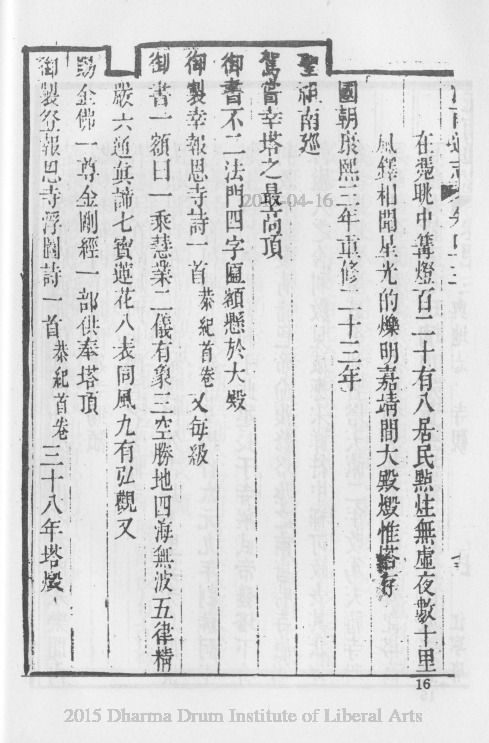 江南通志卷四十三
在憑眺中篝燈百二十有八居民點炷無虛夜數十里
風鐸相聞星光的爍明嘉靖間大殿燬惟塔存
國朝康熙三年重修二十三年
聖祖南廵
駕嘗幸塔之最高頂
御書不二法門四字匾額懸於大殿
御製幸報恩寺詩一首恭紀首卷又每級
御書一額曰一乘慧業二儀有象三空勝地四海無波五律精
嚴六通真諦七寳蓮花八表同風九有弘觀又
賜金佛一尊金剛經一部供奉塔頂
御製登報恩寺浮圖詩一首恭紀首卷三十八年塔燬
2015-04-16
16
2015 Dharma Drum Institute of Liberal Arts